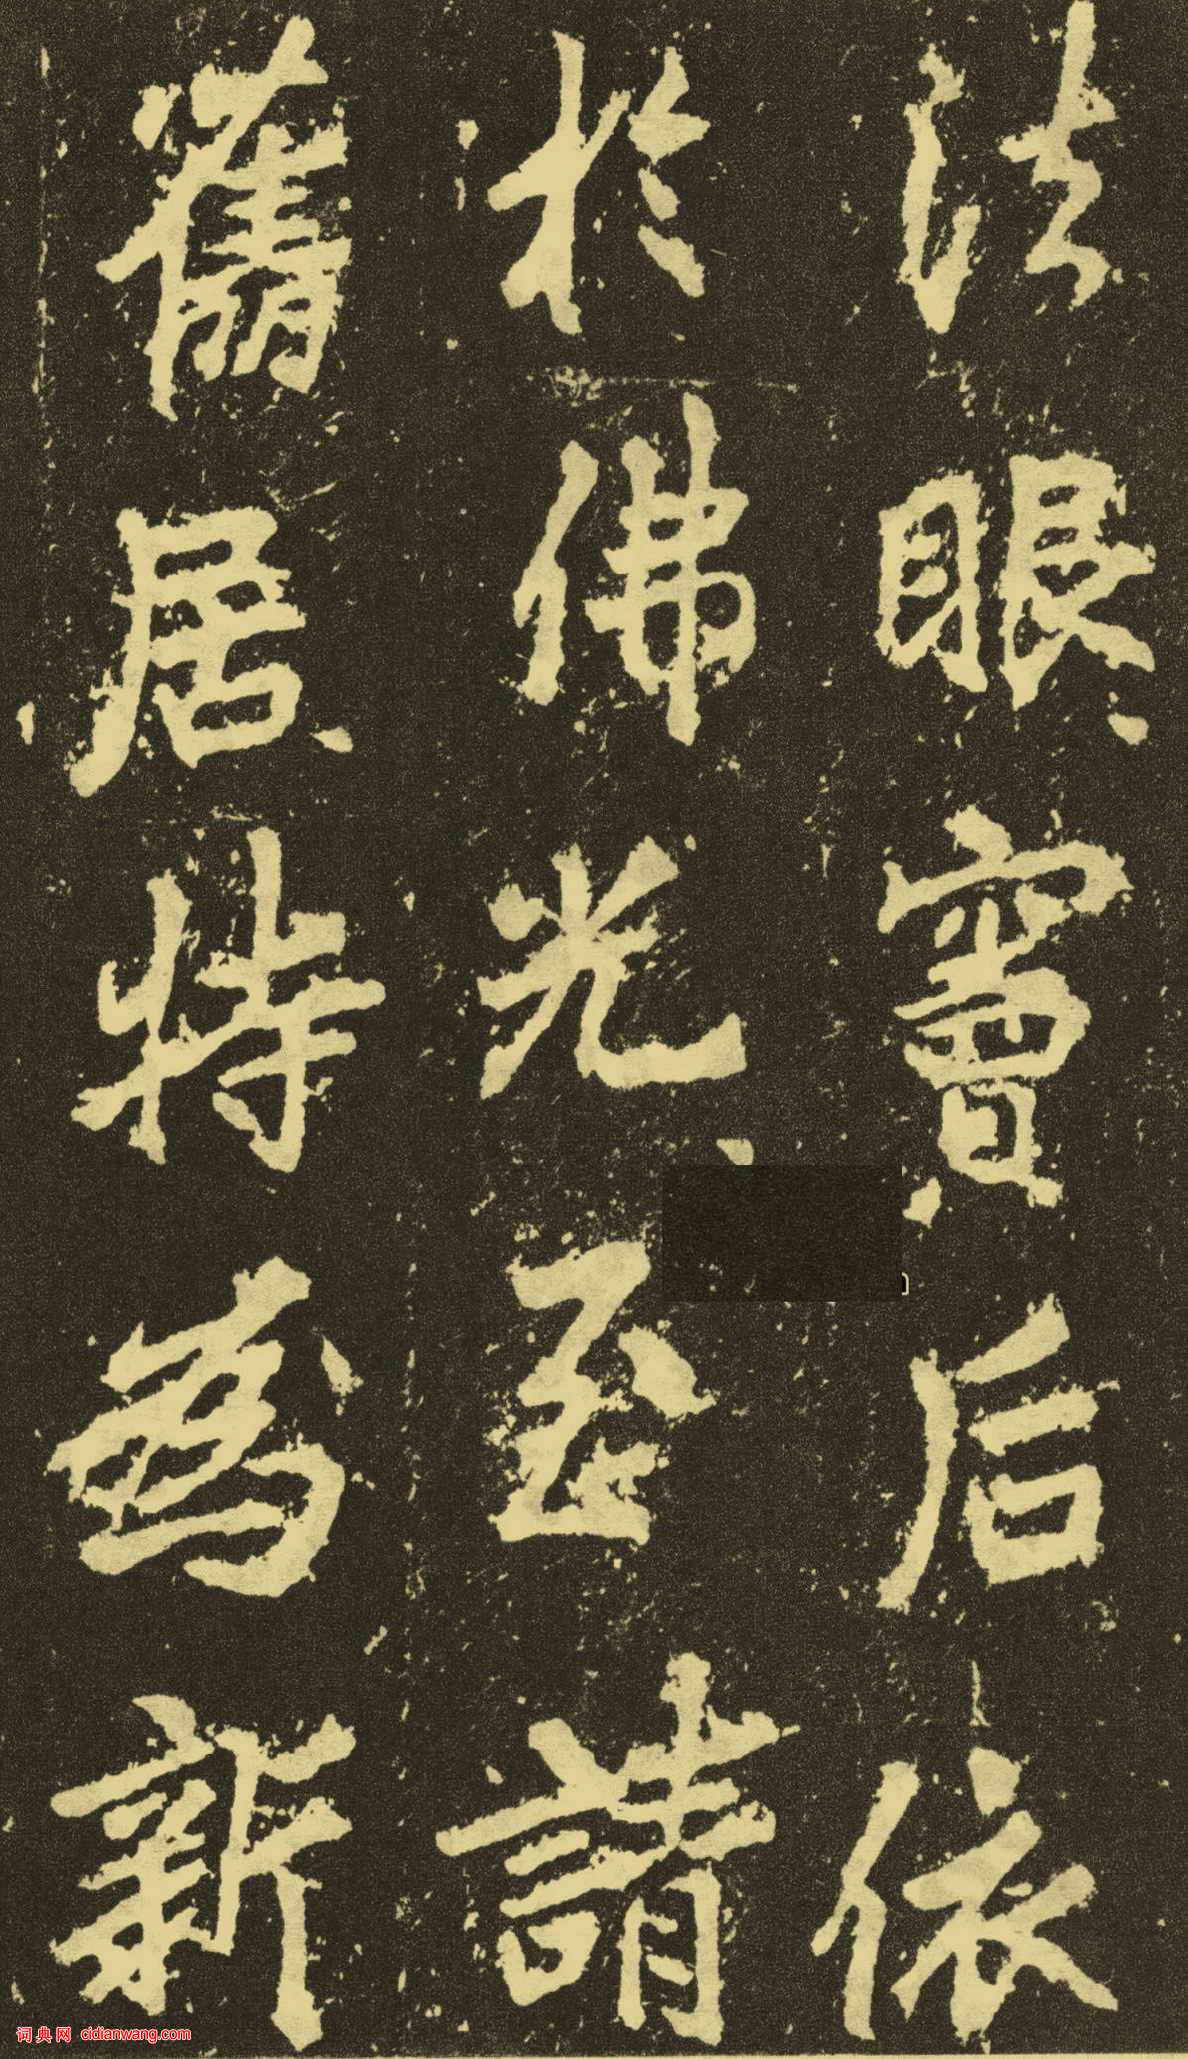 法眼竇后依
於佛光至請
舊居特為新
词典网 cidianwang.com